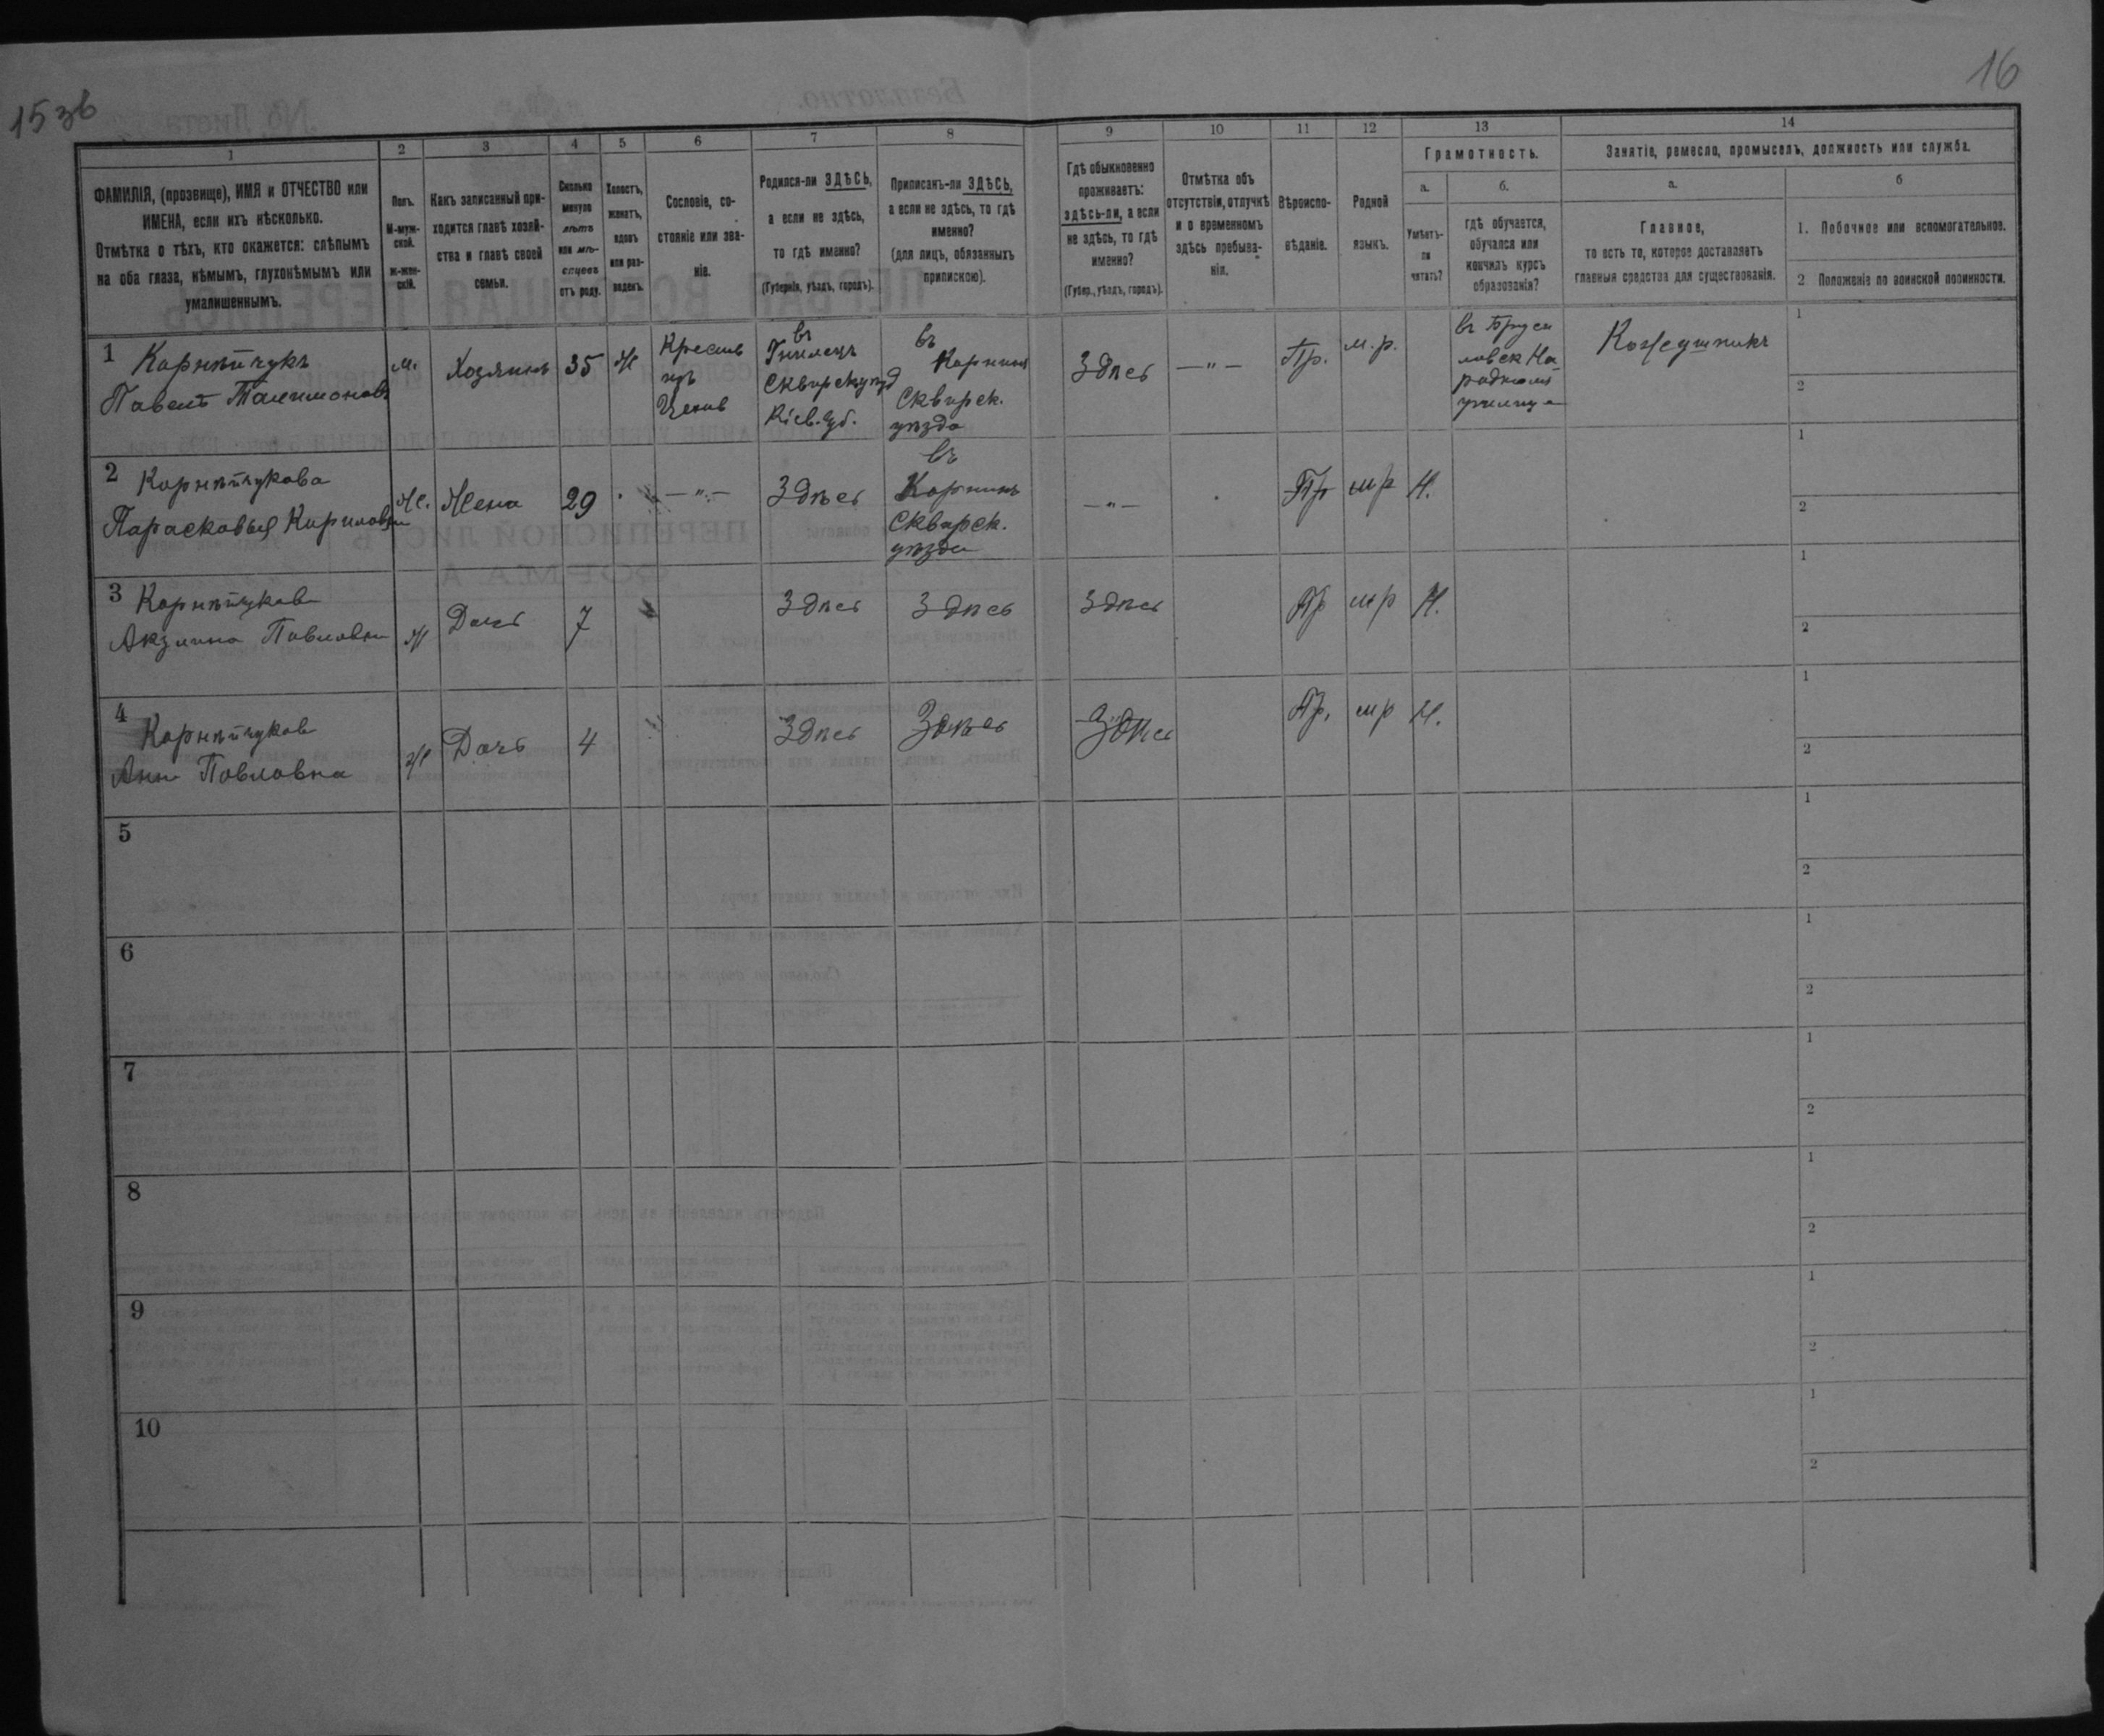 15 зв
16
1
2
3
4
5
6
7
8
9
10
11
12
13
14
ФАМИЛІЯ, (прозвище), ИМЯ и ОТЧЕСТВО или
ИМЕНА, если ихъ нѣсколько.
Отмѣтка о тѣхъ, кто окажется: слѣпымъ
на оба глаза, нѣмымъ, глухонѣмымъ или
умалишеннымъ.
Полъ.
М-муж-
ской.
ж-жен-
скій.
Какъ записанный при-
ходится главѣ хозяй-
ства и главѣ своей
семьи.
Сколько
минуло
лѣтъ
или мѣ-
сяцевъ
отъ роду.
Холостъ,
женатъ,
вдовъ
или раз-
веденъ.
Сословіе, со-
стояніе или зва-
ніе.
Родился-ли ЗДѢСЬ,
а если не здѣсь,
то гдѣ именно?
(Губернія, уѣздъ, городъ).
Приписанъ-ли ЗДѢСЬ,
а если не здѣсь, то гдѣ
именно?
(для лицъ, обязанныхъ
припискою).
Гдѣ обыкновенно
проживаетъ:
здѣсь-ли, а если
не здѣсь, то гдѣ
именно?
(Губер., уѣздъ, городъ).
Отмѣтка объ
отсутствіи, отлучкѣ
и о временномъ
здѣсь пребыва-
ніи.
Вѣроиспо-
вѣданіе.
Родной
языкъ.
Грамотность.
а.
Умѣетъ-
ли
читать?
б.
гдѣ обучается,
обучался или
кончилъ курсъ
образованія?
Занятіе, ремесло, промыселъ, должность или служба.
а.
Главное,
то есть то, которое доставляетъ
главныя средства для существованія.
б
1. Побочное или вспомогательное.
2 Положеніе по воинской повинности.
1
Корнѣйчукъ
Павелъ
м.
Хозяинъ
35
ж
Крестьян
въ
Сквирск
Кіев. губ.
въ
Корнинъ
Сквирск.
уѣзда
Здѣсь
— " —
Пр.
м. р.
въ Бруси
ловск На
родномъ
училищ
1
2
2
Корнѣйчукова
Парасковья Кириловна
Ж.
Жена
29
— " —
Здѣсь
въ
Корнинъ
Сквирск.
уѣзда
— " —
Пр
мр
Н.
1
2
3
Корнѣйчукова
Акулина Павловна
ж
Дочь
7
Здѣсь
Здѣсь
Здѣсь
Пр
мр
Н.
1
2
4
Корнѣйчукова
Анна Павловна
ж
Дочь
4
Здѣсь
Здѣсь
Здѣсь
Пр.
мр
Н.
1
2
5
1
2
6
1
2
7
1
2
8
1
2
9
1
2
10
1
2